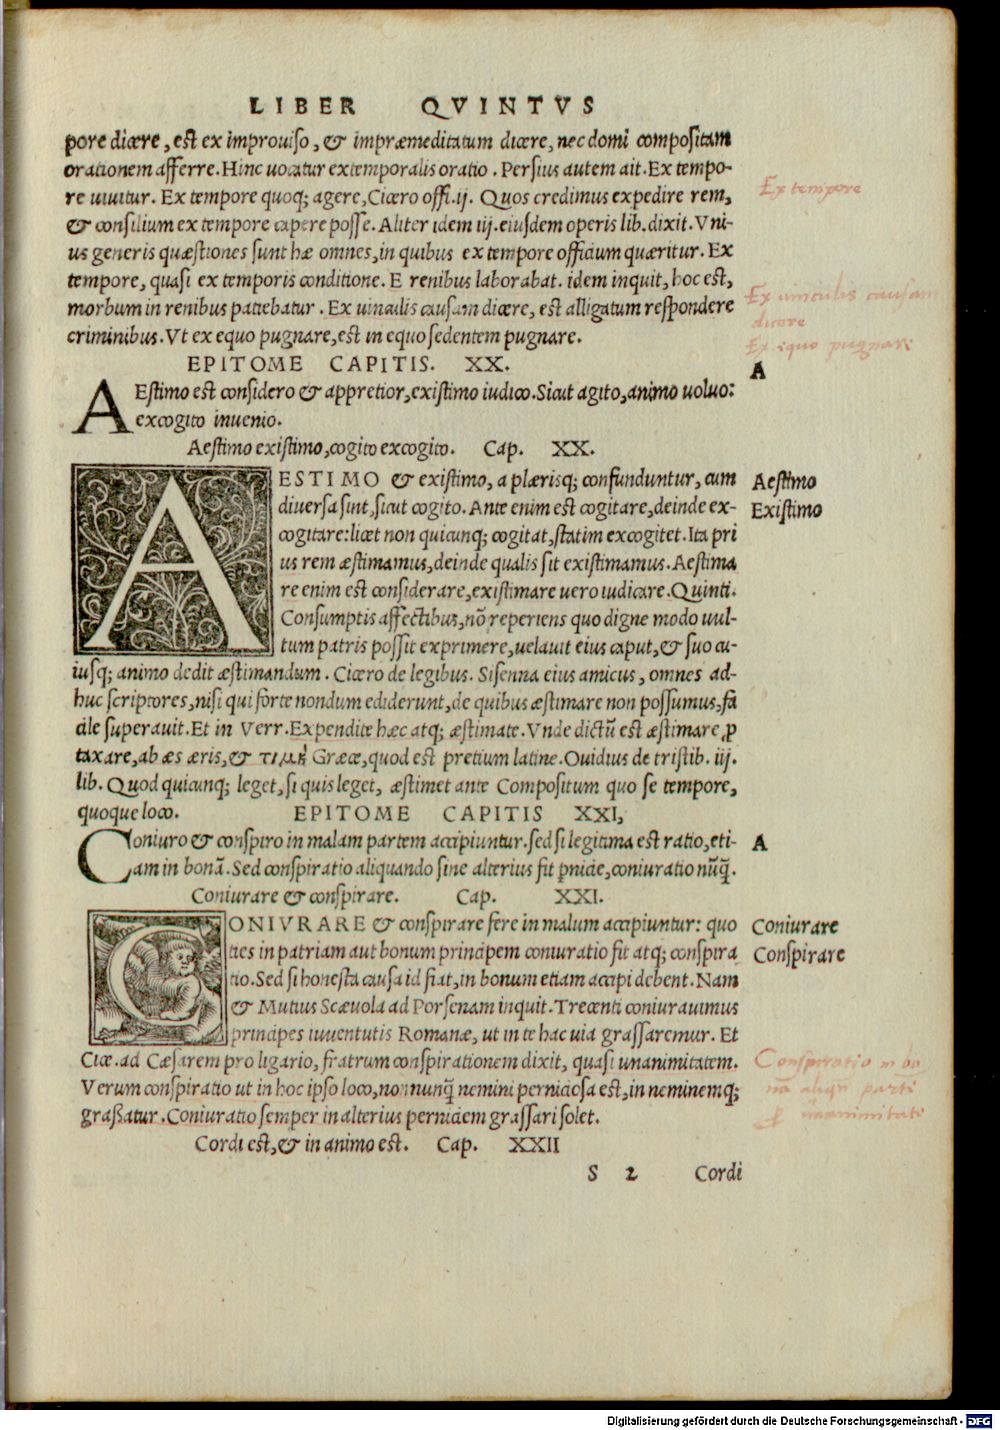 LIBER QVINTVS
pore dicere, est ex improuiso, & impræmeditatum dicere, nec domi compositam
orationem afferre. Hinc uocatur extemporalis oratio. Persius autem ait. Ex tempo-
re uiuitur. Ex tempore quoq; agere, Cicero offi. ij. Quos credimus expedire rem,
& consilium ex tempore capere posse. Aliter idem iij. eiusdem operis lib. dixit. Vni-
us generis quæstiones sunt hæ omnes, in quibus ex tempore officium quæritur. Ex
tempore, quasi ex temporis conditione. E renibus laborabat. idem inquit, hoc est,
morbum in renibus patiebatur. Ex uinculis causam dicere, est alligatum respondere
criminibus. Vt ex equo pugnare, est in equo sedentem pugnare.
Ex tempore
Ex vinculis causam
dicere
Ex equo pugnare
EPITOME CAPITIS. XX.
A
AEstimo est considero & appretior, existimo iudico. Sicut agito, animo uoluo:
excogito inuenio.
Aestimo existimo, cogito excogito. Cap. XX.
AESTIMO & existimo, a plærisq; confunduntur, cum
diuersa sint, sicut cogito. Ante enim est cogitare, deinde ex-
cogitare: licet non quicunq; cogitat, statim excogitet. Ita pri
us rem æstimamus, deinde qualis sit existimamus. Aestima
re enim est considerare, existimare uero iudicare. Quinti.
Consumptis affectibus, nō reperiens quo digne modo uul-
tum patris possit exprimere, uelauit eius caput, & suo cu-
iusq; animo dedit æstimandum. Cicero de legibus. Sisenna eius amicus, omnes ad-
huc scriptores, nisi qui forte nondum ediderunt, de quibus æstimare non possumus, fa
cile superauit. Et in Verr. Expendite hæc atq; æstimate. Vnde dictū est æstimare, ꝑ
taxare, ab æs æris, & τιμὴ Græce, quod est pretium latine. Ouidius de tristib. iij.
lib. Quod quicunq; leget, si quis leget, æstimet ante Compositum quo se tempore,
quoque loco.
Aestimo
Existimo
EPITOME CAPITIS XXI,
Coniuro & conspiro in malam partem accipiuntur. sed si legitima est ratio, eti-
am in bonā. Sed conspiratio aliquando sine alterius fit ꝑnicie, coniuratio nūq̃.
A
Coniurare & conspirare. Cap. XXI.
CONIVRARE & conspirare fere in malum accipiuntur: quo
ties in patriam aut bonum principem coniuratio fit atq; conspira
tio. Sed si honesta causa id fiat, in bonum etiam accipi debent. Nam
& Mutius Scæuola ad Porsenam inquit. Trecenti coniurauimus
principes iuuentutis Romanæ, ut in te hac uia grassaremur. Et
Cice. ad Cæsarem pro ligario, fratrum conspirationem dixit, quasi unanimitatem.
Verum conspiratio ut in hoc ipso loco, nonnunq̃ nemini perniciosa est, in neminemq;
graßatur. Coniuratio semper in alterius perniciem grassari solet.
Coniurare
Conspirare
Conspiratio in bo
nā aliqñ parti
unanimitate
Cordi est, & in animo est. Cap. XXII
S 2 Cordi
Digitalisierung gefördert durch die Deutsche Forschungsgemeinschaft - DFG